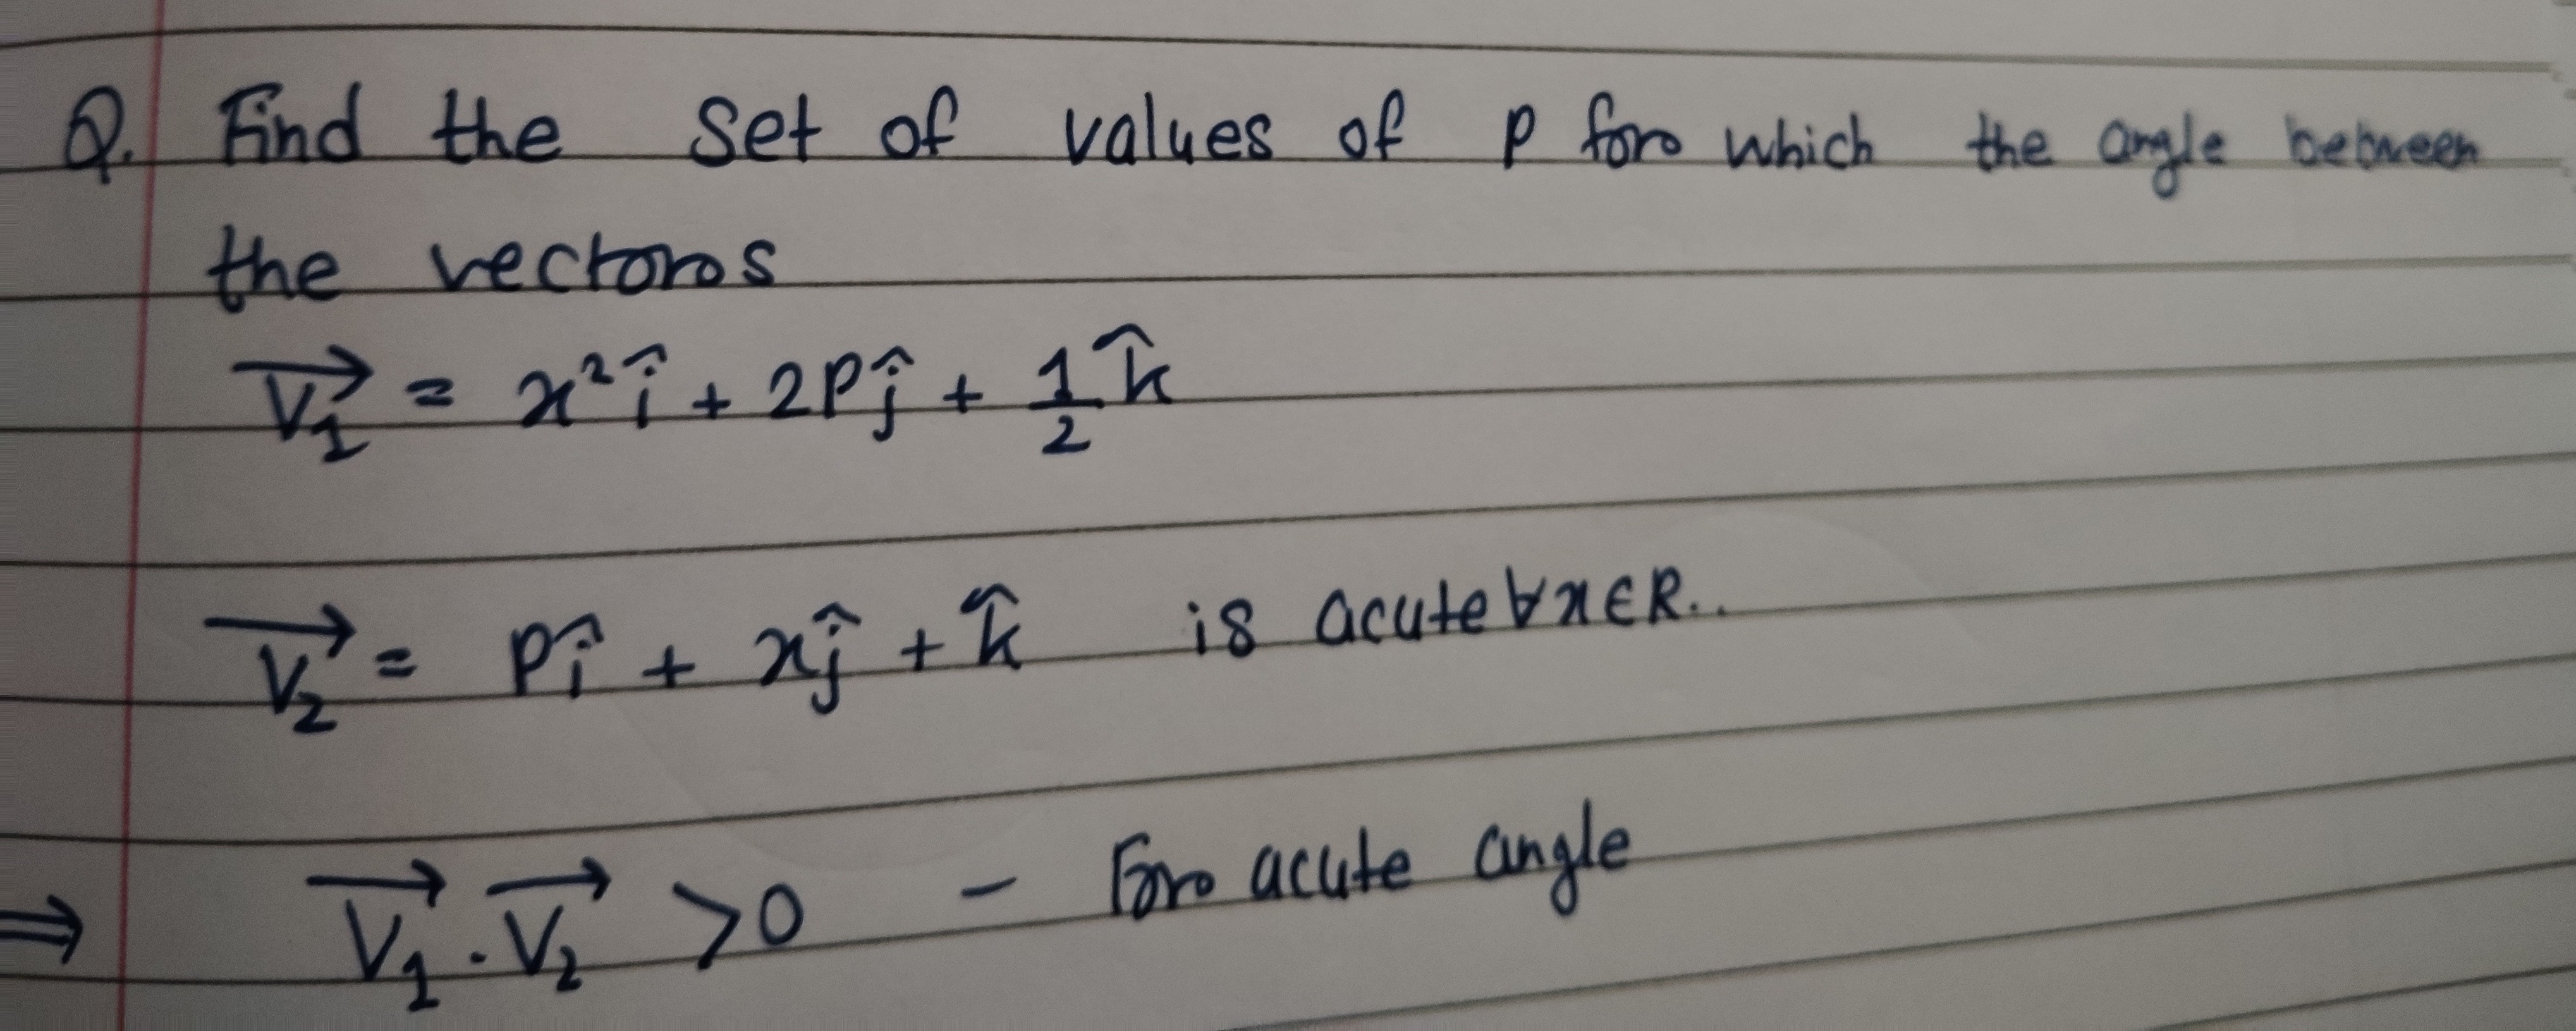 Q. Find the set of values of P for which the angle between
the vectors
$\overrightarrow{V_1} = x^2\hat{i} + 2P\hat{j} + \frac{1}{2}\hat{k}$
$\overrightarrow{V_2} = P\hat{i} + x\hat{j} + \hat{k}$ is acute ∀ x ∈ R..
⇒ $\overrightarrow{V_1} \cdot \overrightarrow{V_2} > 0$ - For acute angle